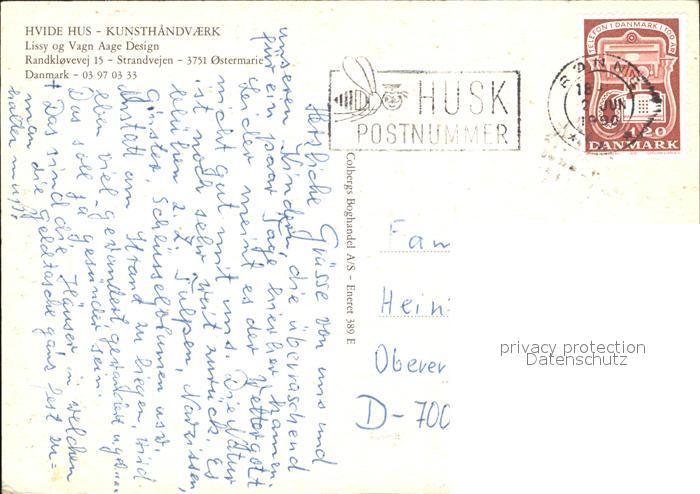 HVIDE HUS - KUNSTHÅNDVÆRK
Lissy og Vagn Aage Design
Randkløvevej 15 - Strandvejen - 3751 Østermarie
Danmark - 03 97 03 33
HUSK
POSTNUMMER
TELEFON I DANMARK I 100 ÅR
RØNNE
18
2 JUN
1980
120
DANMARK
Colbergs Boghandel A/S - Eneret 389 E
Herzliche Grüsse von uns und
unseren Kindern, die überraschend
für ein paar Tage hierher kamen.
Leider meint es der Wettergott
nicht gut mit uns. Die Natur
ist noch sehr weit zurück. Es
blühen z. Z. Tulpen, Narzissen,
Ginster, Schlüsselblumen usw.
Anstatt am Strand zu liegen, wird
eben viel gewandert
Das soll ja gesünder sein.
+ Das sind die Häuser in welchen
man die Geldtasche ganz fest zu=
halten muß.
Fam
Hein
Oberer
D-700
privacy protection
Datenschutz